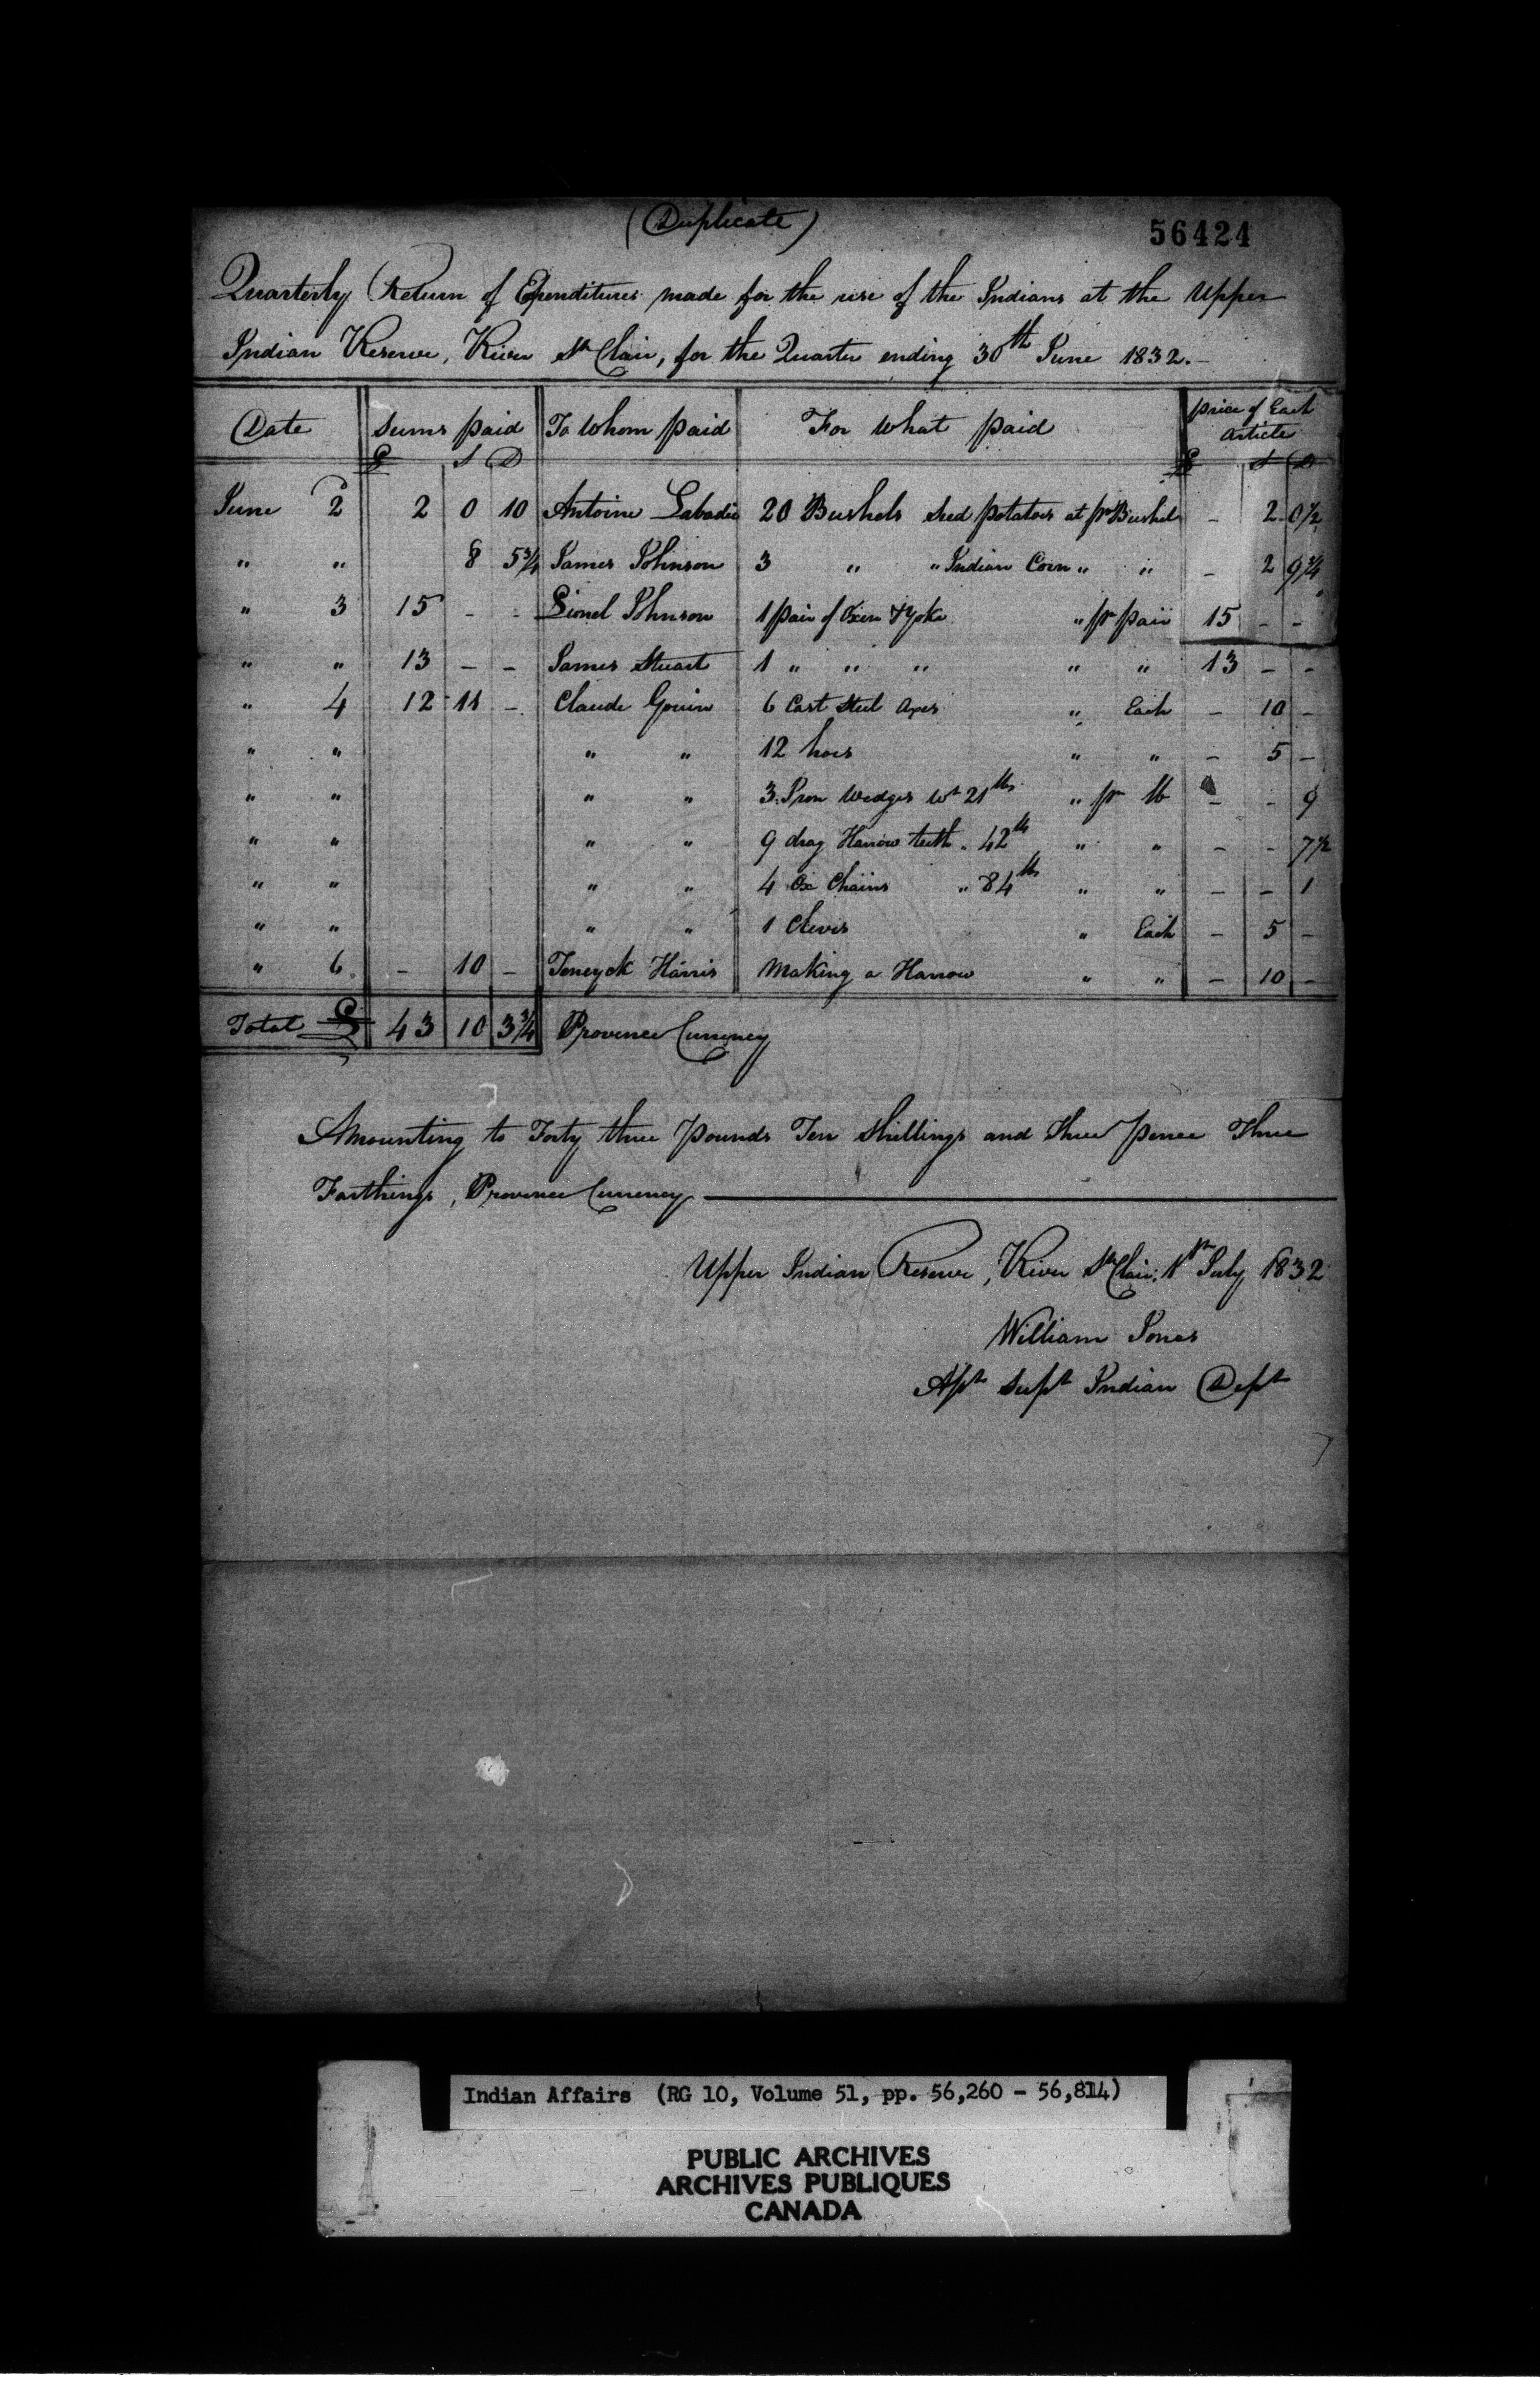 (Duplicate)
56424
Quarterly Return of Expenditures made for the use of the Indians at the Upper
Indian Reserve, River St Clair, for the Quarter ending 30th June 1832.-
Date Sums paid To Whom paid For What paid price of Each Article
£ S D £ S D
June 2 2 0 10 Antoine Labadie 20 Bushels Seed potatoes at pr Bushel - 2 0½
" " 8 5¾ James Johnson 3 " " Indian Corn " " - 2 9¾
" 3 15 - - Lionel Johnson 1 pair of Oxen & Yoke " pr pair 15 - -
" " 13 - - James Stuart 1 " " " " " 13 - -
" 4 12 11 - Claude Gouin 6 Cast Steel Axes " Each - 10 -
" " " " 12 hoes " " - 5 -
" " " " 3 Iron Wedges wt 21 lbs " pr lb - - 9
" " " " 9 drag Harrow teeth " 42 lbs " " - - 7½
" " " " 4 Ox Chains " 84 lbs " " - - 1
" " " " 1 Clevis " Each - 5 -
" 6 - 10 - Teneyck Harris Making a Harrow " " - 10 -
Total £ 43 10 3¾ Province Currency
Amounting to Forty three Pounds Ten Shillings and three pence Three
Farthings, Province Currency
Upper Indian Reserve, River St Clair, 1st July 1832
William Jones
Asst Supt Indian Dept
Indian Affairs (RG 10, Volume 51, pp. 56,260 - 56,814)
PUBLIC ARCHIVES
ARCHIVES PUBLIQUES
CANADA